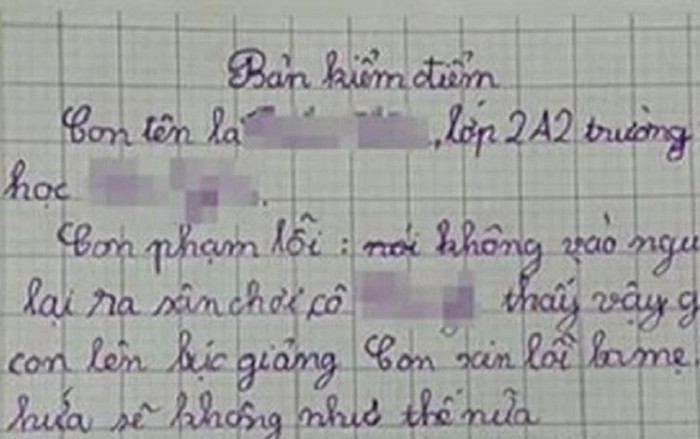 Bản kiểm điểm
Con tên là , lớp 2A2 trường
học .
Con phạm lỗi : nói không vào ngu
lại ra sân chơi cô thấy vậy g
con lên bục giảng Con xin lỗi ba mẹ.
hứa sẽ không như thế nữa